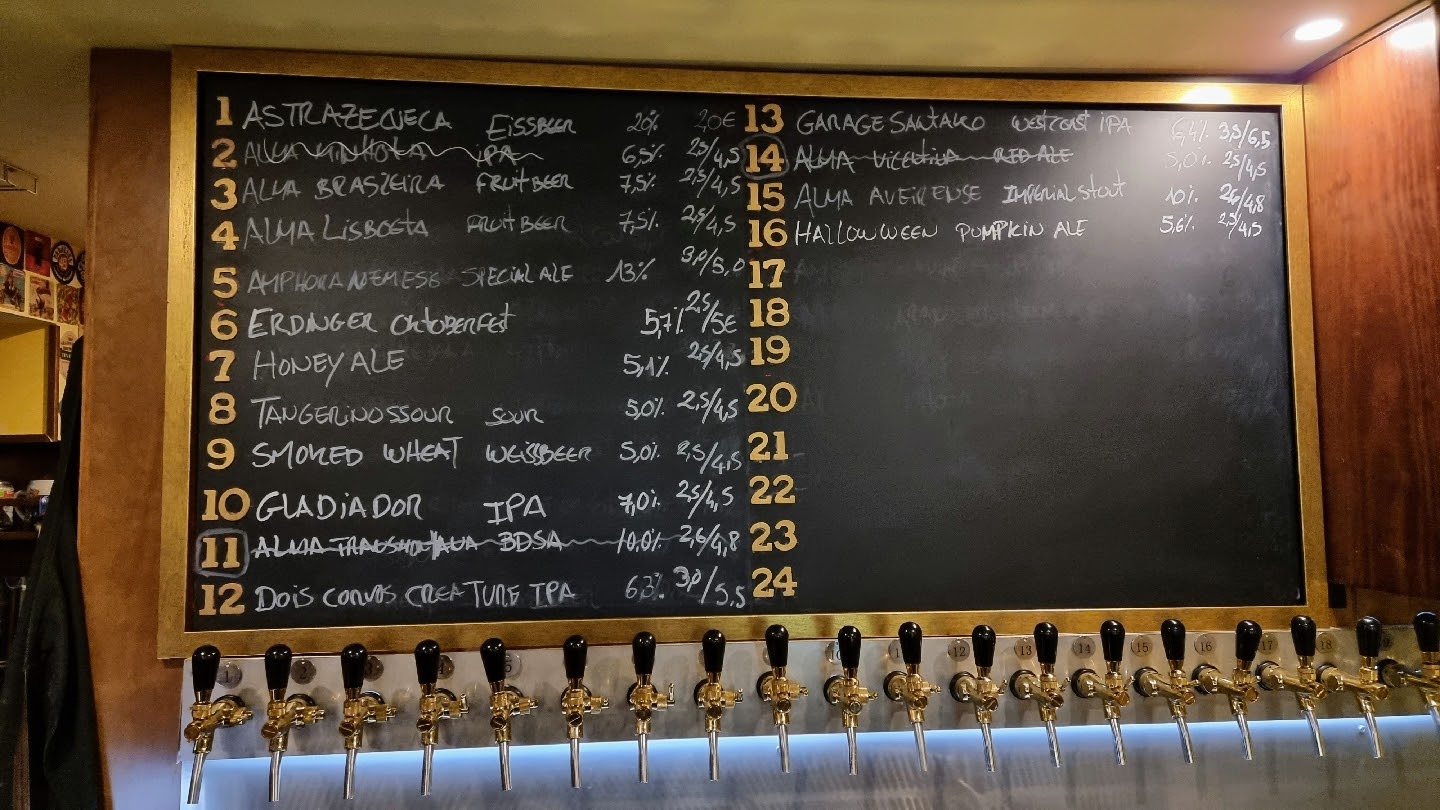 1 ASTRAZECJECA EISSBEER 20% 20€
2 ALMA MINHOTA IPA 6,5% 2,5/4,5
3 ALMA BRASZEIRA FRUITBEER 7,5% 2,5/4,5
4 ALMA LISBOETA FRUITBEER 7,5% 2,5/4,5
5 AMPHORA NEMESE SPECIAL ALE 13% 3,0/5,0
6 ERDINGER OKTOBERFEST 5,7% 2,5/5€
7 HONEY ALE 5,1% 2,5/4,5
8 TANGERINOSSOUR SOUR 5,0% 2,5/4,5
9 SMOKED WHEAT WEISSBEER 5,0% 2,5/4,5
10 GLADIADOR IPA 7,0% 2,5/4,5
11 ALMA BDSA 10,0% 2,6/4,8
12 DOIS CORVOS CREATURE IPA 6,3% 3,0/5,5
13 GARAGE SANTAKO WESTCOAST IPA 6,4% 3,5/6,5
14 ALMA RED ALE 5,0% 2,5/4,5
15 ALMA AVEIRENSE IMPERIAL STOUT 10% 2,6/4,8
16 HALLOWWEEN PUMPKIN ALE 5,6% 2,5/4,5
17
18
19
20
21
22
23
24
1 2 5 12 13 14 15 16 17 18